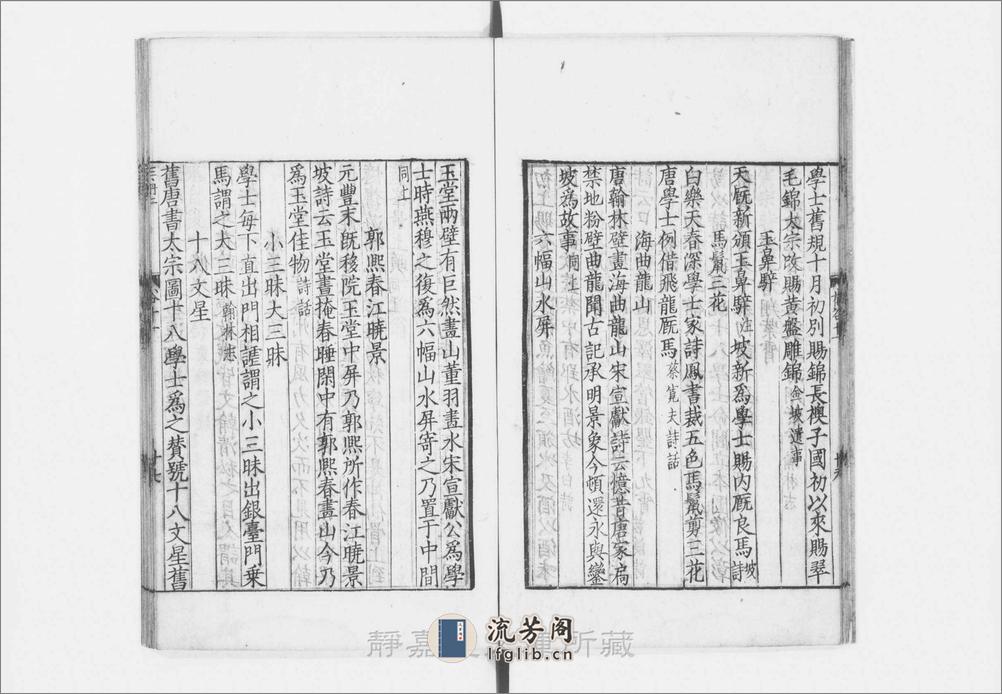 學士舊規十月初別賜錦長襖子國初以來賜翠
毛錦太宗改賜黃盤雕錦金坡遺事
玉鼻騂
天厩新頒玉鼻騂注坡新爲學士賜内厩良馬坡詩
馬鬣三花
白樂天春深學士家詩鳳書裁五色馬鬣剪三花
唐學士例借飛龍厩馬蔡寬夫詩話
海曲龍山
唐翰林壁畫海曲龍山宋宣獻詩云憶昔唐家扃
禁地粉壁曲龍聞古記承明景象今頓還永與鑾
坡爲故事同上
六幅山水屏
玉堂兩壁有巨然畫山董羽畫水宋宣獻公爲學
士時燕穆之復爲六幅山水屏寄之乃置于中間
同上
郭熙春江曉景
元豐末既移院玉堂中屏乃郭熙所作春江曉景
坡詩云玉堂晝掩春睡閑中有郭熙春畫山今乃
爲玉堂佳物詩話
小三昧大三昧
學士每下直出門相謔謂之小三昧出銀臺門乗
馬謂之大三昧翰林志
十八文星
舊唐書太宗圖十八學士爲之賛號十八文星舊
流芳阁
lfglib.cn
靜嘉 所藏